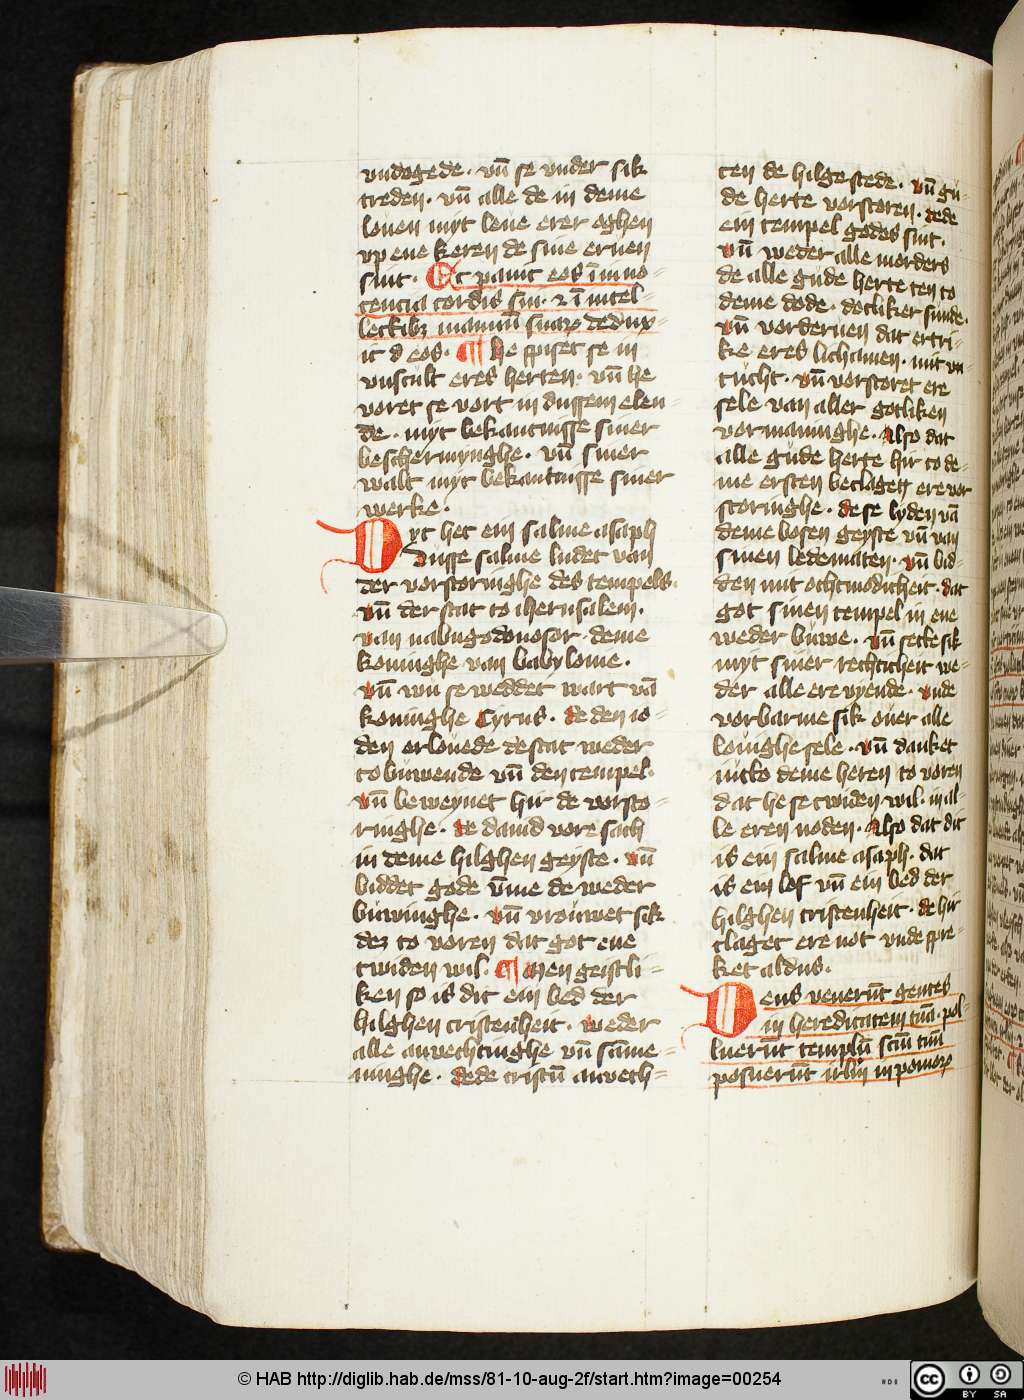 vndogede. vn̄ se vnder sik
treden. vn̄ alle de in deme
louen myt leue erer oghen
vp ene keren de sine eruen
sint. Et pauit eos ī inno=
cencia cordis sui. ⁊ ī intel=
lectibꝫ manuū suaꝝ dedux=
it d eos. ¶ he spiset se in
vnscult eres herten. vn̄ he
voret se vort in dussem elen=
de. myt bekantnisse siner
beschermynghe. vn̄ siner
walt myt bekantnisse siner
werke.
Dyt het ein salme asaph
Dusse salme ludet van
der vorstoringhe des tempels.
vn̄ der stat to iherusalem.
van nabugodonosor. deme
koninghe van babylonie.
vn̄ wu se weddet wart vā
koninghe Cyrus. de den io=
den orlouede de stat weder
to buwende vn̄ den tempel.
vn̄ beweynet hir de vorsto=
ringhe. de dauid vore sach
in deme hilghen geyste. vn̄
biddet gode vm̄me de weder
buwinghe. vn̄ vrouwet sik
dez to voren dat got ene
twiden wil. ¶ Men geistli=
ken so is dit ein bed der
hilghen cristenheit. weder
alle anvechtinghe vn̄ sāme=
ninghe. de de cristū anvech=
ten de hilge stede. vn̄ gu=
de herte vorstoren. de de
ein tempel godes sint.
vn̄ weder alle morders
de alle gude herte ten to
deme dode. dotliker sunde.
vn̄ vorderuen dat ertri=
ke eres lichamen. mit vn=
tucht. vn̄ vorstoret ere
sele van aller gotliken
vormaninghe. Also dat
alle gude herte hir to de=
me ersten beclagen ere vor
storinghe. de se lyden vā
deme bosen geyste vn̄ van
sinen ledematen. vn̄ bid=
den mit othmodicheit. dat
got sinen tempel in ene
weder buwe. vn̄ sette sik
myt siner rechticheit we=
der alle ere vyende. vnde
vorbarme sik ouer alle
louighe sele. vn̄ danket
iutto deme heren to voren
dat he se twiden wil. in al=
le eren noden. Also dat dit
is ein salme asaph. dat
is ein lof vn̄ ein bed der
hilghen cristenheit. de hir
claget ere not vnde spre=
ket aldus.
Deus venerūt gentes
in hereditatem tuā. pol=
luerūt templū scm̄ tuū
posuerūt irlm̄ in pomoꝝ
© HAB http://diglib.hab.de/mss/81-10-aug-2f/start.htm?image=00254
cc BY SA